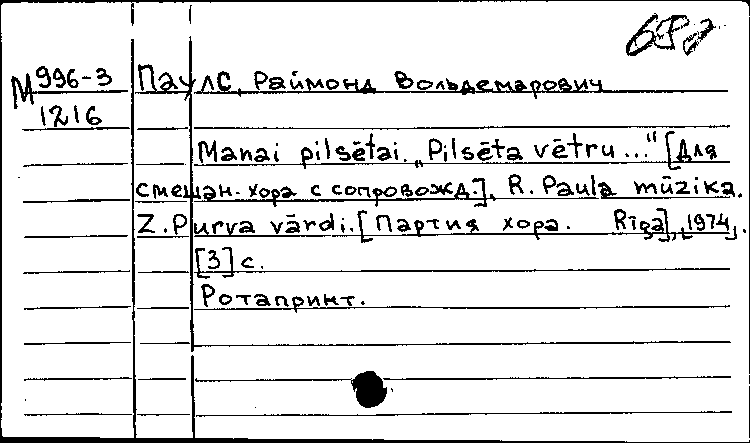 М 996-3
1216
Паулс, Раймонд Вольдемарович
Manai pilsētai. „Pilsēta vētru..." [Для
смешан. хора с сопровожд.]. R. Paula mūzika.
Z. Purva vārdi. [Партия хора. Rīga], [1974].
[3] с.
Ротапринт.